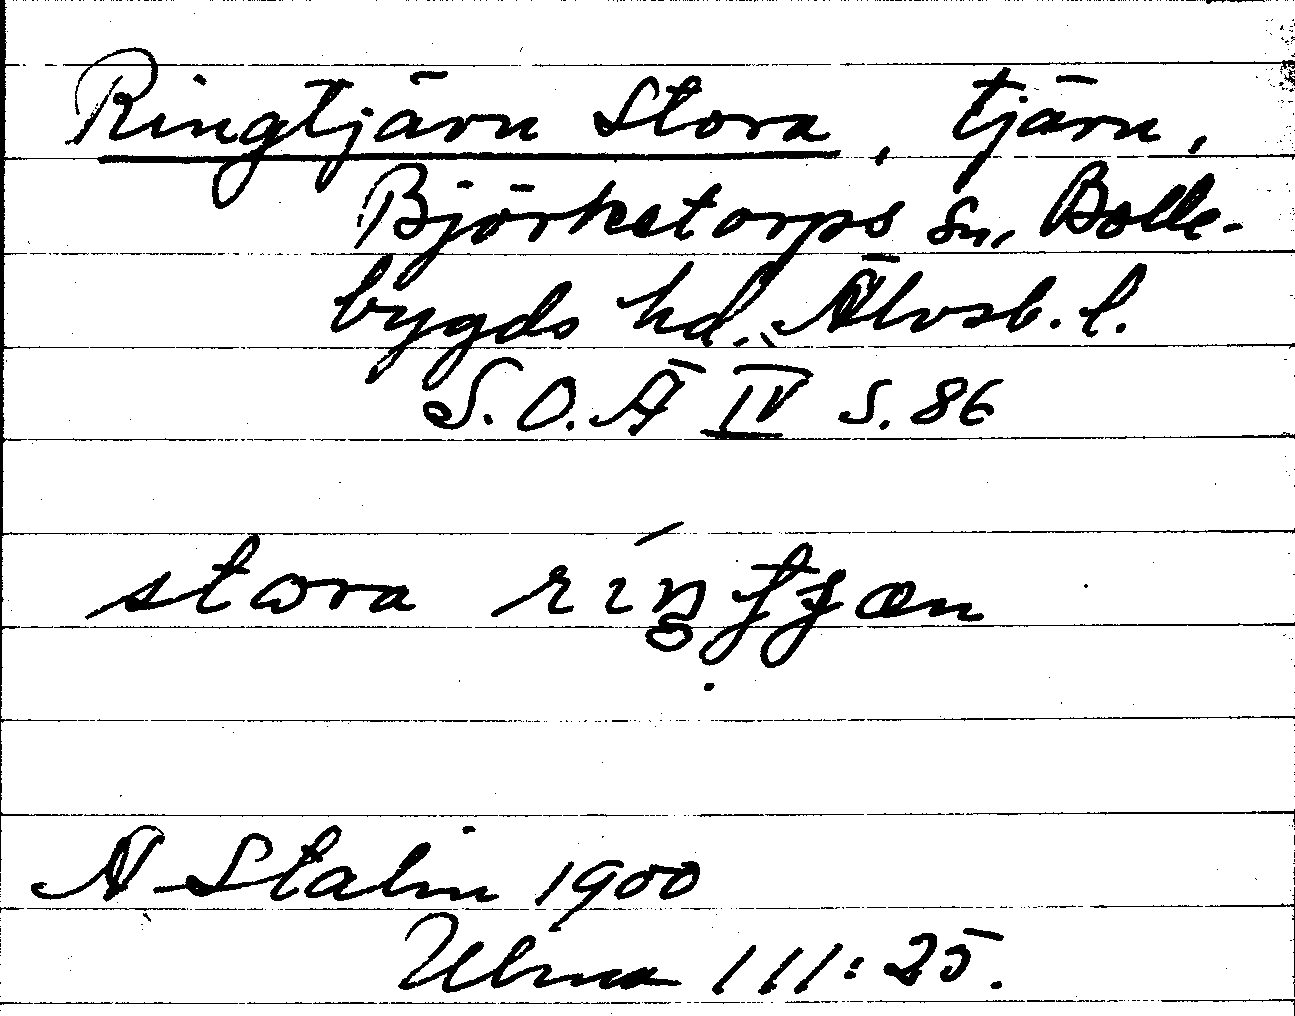 Ringtjärn Stora, tjärn,
Björketorps sn, Bolle-
bygds hd. Älvsb. l.
S.O.Ä IV s. 86
stora ríŋtjæn
A Stalin 1900
Ulma 111:25.